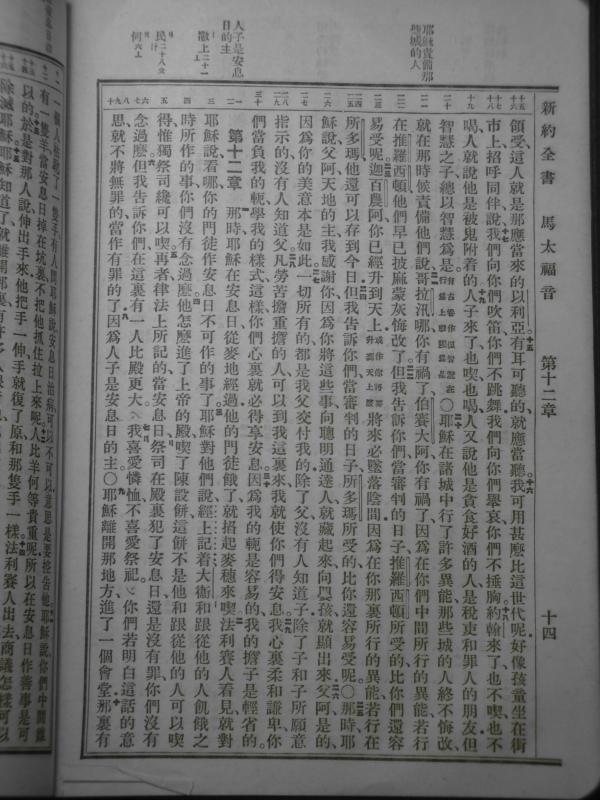 新約全書 馬太福音 第十二章 十四
耶穌責備那些城的人
人子是安息日的主
撒上二十一
民二十八
何六
領受這人就是那應當來的以利亞有耳可聽的就應當聽我可用甚麼比這世代呢好像孩童坐在街
市上招呼同伴說我們向你們吹笛你們不跳舞我們向你們舉哀你們不捶胸約翰來了也不喫也不
喝人就說他是被鬼附着的人子來了也喫也喝人又說他是貪食好酒的人是稅吏和罪人的朋友但
智慧之子總以智慧為是〇耶穌在諸城中行了許多異能那些城的人終不悔改
就在那時候責備他們說哥拉汛哪你有禍了伯賽大阿你有禍了因為在你們中間所行的異能若行
在推羅西頓他們早已披麻蒙灰悔改了但我告訴你們當審判的日子推羅西頓所受的比你們還容
易受呢迦百農阿你已經升到天上將來必墜落陰間因為在你那裏所行的異能若行在
所多瑪他還可以存到今日但我告訴你們當審判的日子所多瑪所受的比你還容易受呢〇那時耶
穌說父阿天地的主我感謝你因為你將這些事向聰明通達人就藏起來向嬰孩就顯出來父阿是的
因為你的美意本是如此一切所有的都是我父交付我的除了父沒有人知道子除了子和子所願意
指示的沒有人知道父凡勞苦擔重擔的人可以到我這裏來我就使你們得安息我心裏柔和謙卑你
們當負我的軛學我的樣式這樣你們心裏就必得享安息因為我的軛是容易的我的擔子是輕省的
第十二章 那時耶穌在安息日從麥地經過他的門徒餓了就掐起麥穗來喫法利賽人看見就對
耶穌說看哪你的門徒作安息日不可作的事了耶穌對他們說經上記着大衞和跟從他的人飢餓之
時所作的事你們沒有念過麼他怎麼進了上帝的殿喫了陳設餅這餅不是他和跟從他的人可以喫
得惟獨祭司纔可以喫再者律法上所記的當安息日祭司在殿裏犯了安息日還是沒有罪你們沒有
念過麼但我告訴你們在這裏有一人比殿更大我喜愛憐恤不喜愛祭祀你們若明白這話的意
思就不將無罪的當作有罪的了因為人子是安息日的主〇耶穌離開那地方進了一個會堂那裏有
有一隻羊當安息日掉在坑裏不把他抓住拉上來呢人比羊何等貴重呢所以在安息日作善事是可
以的於是對那人說伸出手來他把手一伸手就復了原和那隻手一樣法利賽人出去商議怎樣可以
除滅耶穌耶穌知道了就離開那裏